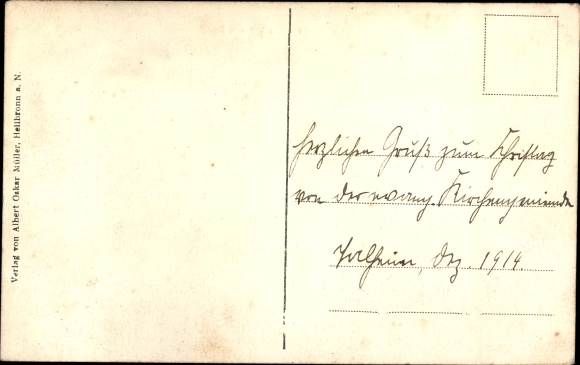 Verlag von Albert Oskar Müller, Heilbronn a. N.
Herzlichen Gruß zum Christtag
von der evang. Kirchengemeinde
Talheim, Dez. 1914.